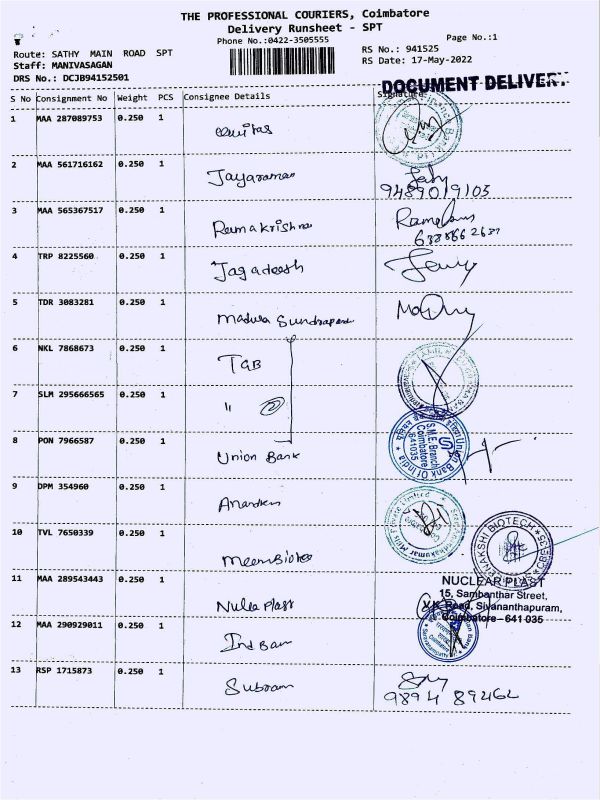 THE PROFESSIONAL COURIERS, Coimbatore
Delivery Runsheet - SPT
Phone No.:0422-3505555
Page No.:1
Route: SATHY MAIN ROAD SPT
RS No.: 941525
Staff: MANIVASAGAN
RS Date: 17-May-2022
DRS No.: DCJB94152501
DOCUMENT DELIVERY
S No Consignment No Weight PCS Consignee Details Signature
1 MAA 287089753 0.250 1
2 MAA 561716162 0.250 1 Jayaraman
9489019105
3 MAA 565367517 0.250 1 Ramakrishna
4 TRP 8225560 0.250 1 Jagadeesh
5 TDR 3083281 0.250 1 Madura
6 NKL 7868673 0.250 1 TGB
7 SLM 295666565 0.250 1 " 2
8 PON 7966587 0.250 1 Union Bank
Union Bank Of India
S.M.E. Branch
Coimbatore
641035
9 DPM 354960 0.250 1
Mills Private Limited
10 TVL 7650339 0.250 1
11 MAA 289543443 0.250 1 Nulea Plast
NUCLEAR PLAST
15, Sambanthar Street,
Road, Sivananthapuram,
Coimbatore - 641 035
12 MAA 290929011 0.250 1 Ind Ban
13 RSP 1715873 0.250 1 Subram
9894 89262